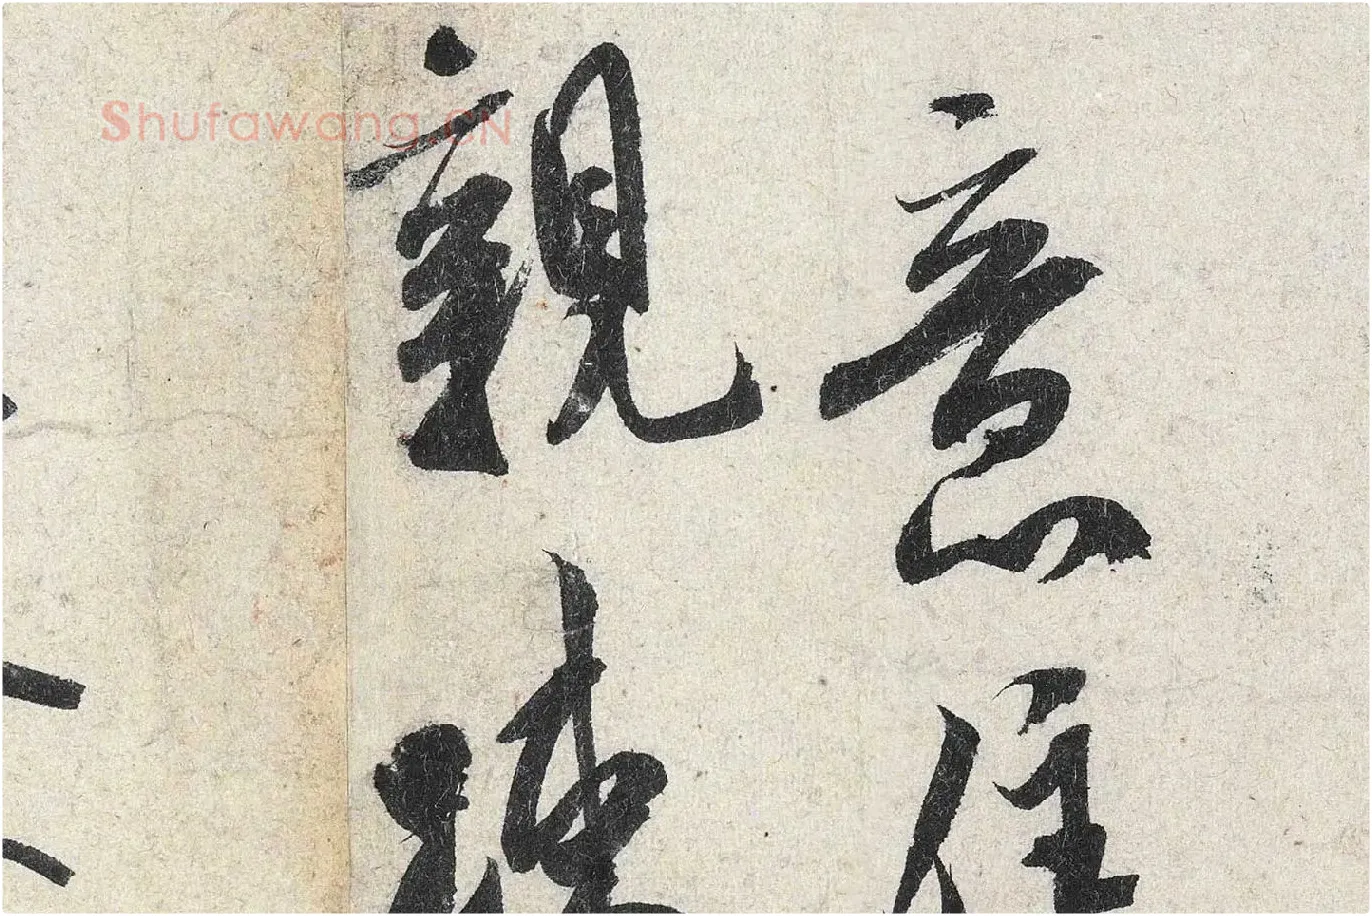 Shufawang.CN
意住
親踈